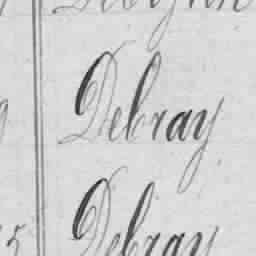 Debray
5 Debray